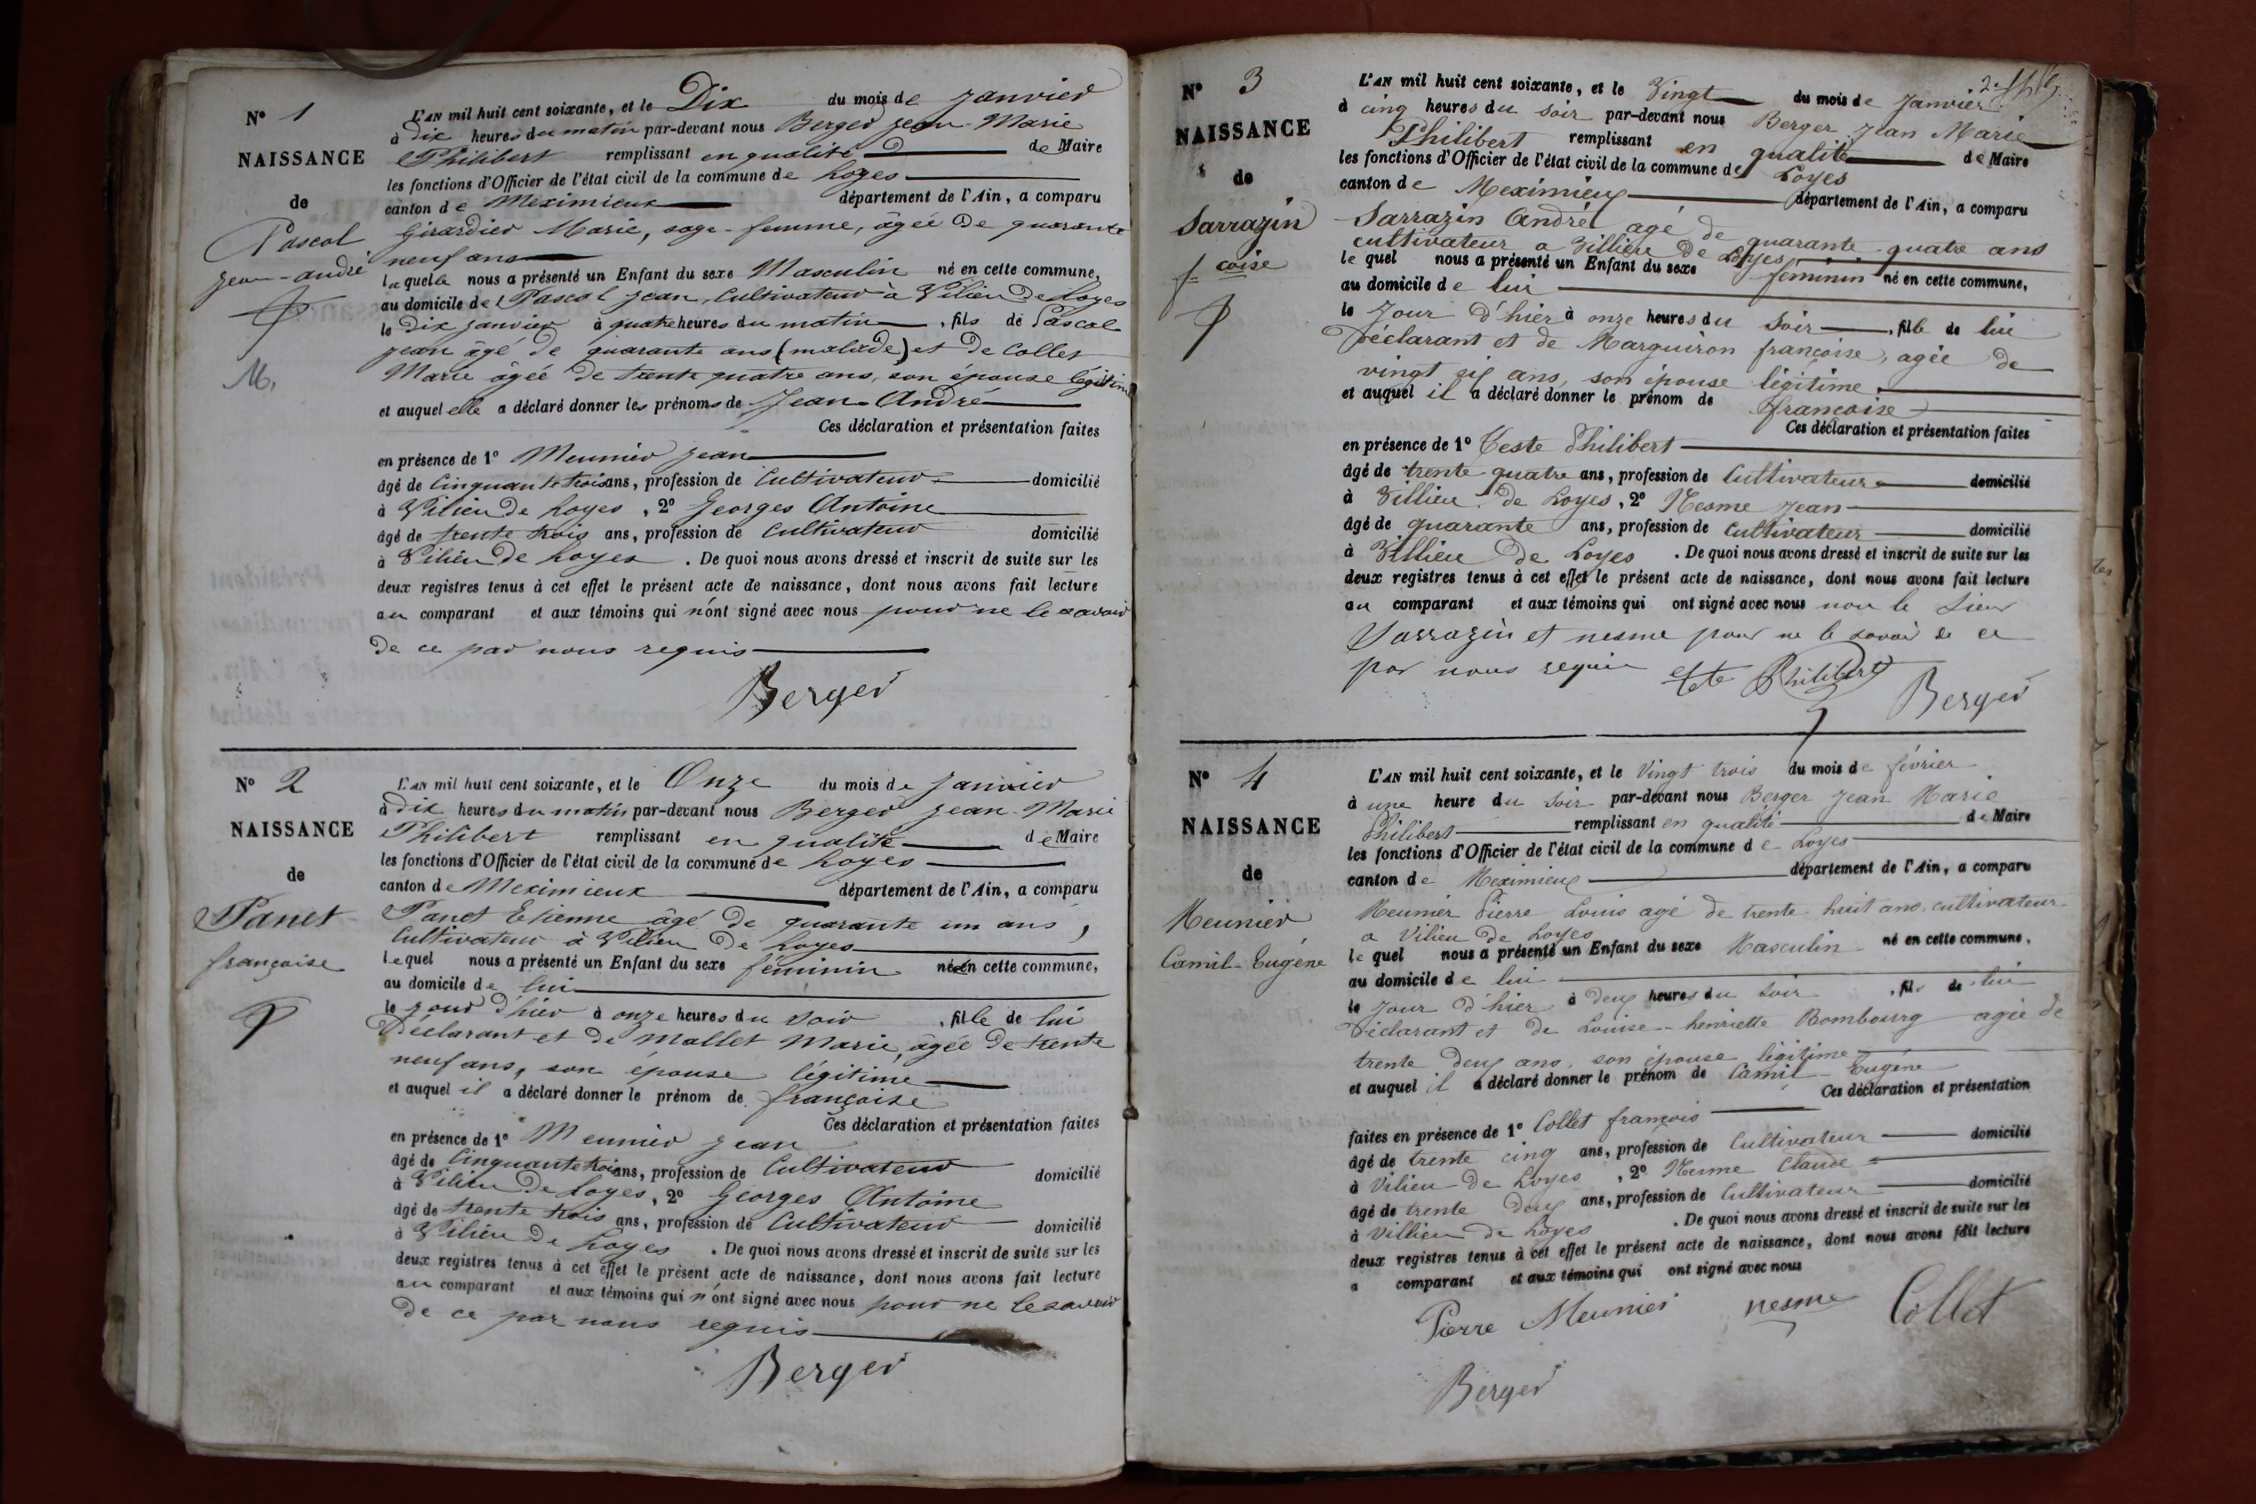 N° 1
NAISSANCE
de
Pascal
jean-andré
M.
L'AN mil huit cent soixante, et le Dix du mois de janvier
à dix heures du matin par-devant nous Berger jean-Marie
Philibert remplissant en qualité de Maire
les fonctions d'Officier de l'état civil de la commune de Loyes
canton de Meximieux département de l'Ain, a comparu
Girardier Marie, sage-femme, âgée de quarante
neuf ans
laquelle nous a présenté un Enfant du sexe Masculin né en cette commune,
au domicile de Pascal jean, cultivateur à Vilieu de Loyes
le dix janvier à quatre heures du matin, fils de Pascal
jean âgé de quarante ans (malade) et de Collet
Marie âgée de trente quatre ans, son épouse légitime
et auquel elle a déclaré donner les prénoms de Jean-André
Ces déclaration et présentation faites
en présence de 1° Meunier jean
âgé de Cinquante trois ans, profession de Cultivateur domicilié
à Vilieu de Loyes, 2° Georges Antoine
âgé de trente trois ans, profession de cultivateur domicilié
à Vilieu de Loyes. De quoi nous avons dressé et inscrit de suite sur les
deux registres tenus à cet effet le présent acte de naissance, dont nous avons fait lecture
au comparant et aux témoins qui n'ont signé avec nous pour ne le savoir
de ce par nous requis
Berger
N° 2
NAISSANCE
de
Panet
françoise
L'AN mil huit cent soixante, et le Onze du mois de janvier
à dix heures du matin par-devant nous Berger jean-Marie
Philibert remplissant en qualité de Maire
les fonctions d'Officier de l'état civil de la commune de Loyes
canton de Meximieux département de l'Ain, a comparu
Panet Etienne âgé de quarante un ans,
Cultivateur à Vilieu de Loyes
lequel nous a présenté un Enfant du sexe féminin né en cette commune,
au domicile de lui
le jour d'hier à onze heures du soir, fille de lui
Déclarant et de Mallet Marie, âgée de trente
neuf ans, son épouse légitime
et auquel il a déclaré donner le prénom de françoise
Ces déclaration et présentation faites
en présence de 1° Meunier jean
âgé de Cinquante trois ans, profession de Cultivateur domicilié
à Vilieu de Loyes, 2° Georges Antoine
âgé de trente trois ans, profession de Cultivateur domicilié
à Vilieu de Loyes. De quoi nous avons dressé et inscrit de suite sur les
deux registres tenus à cet effet le présent acte de naissance, dont nous avons fait lecture
au comparant et aux témoins qui n'ont signé avec nous pour ne le savoir
de ce par nous requis
Berger
N° 3
NAISSANCE
de
Sarrazin
fcoise
L'AN mil huit cent soixante, et le Vingt du mois de Janvier
à cinq heures du soir par-devant nous Berger Jean Marie
Philibert remplissant en qualité de Maire
les fonctions d'Officier de l'état civil de la commune de Loyes
canton de Meximieux département de l'Ain, a comparu
Sarrazin André agé de quarante-quatre ans
cultivateur a Villieu de Loyes
lequel nous a présenté un Enfant du sexe féminin né en cette commune,
au domicile de lui
le Jour d'hier à onze heures du soir, fille de lui
Déclarant et de Marguiron françoise, agée de
vingt six ans, son épouse légitime
et auquel il a déclaré donner le prénom de françoise
Ces déclaration et présentation faites
en présence de 1° Teste Philibert
âgé de trente-quatre ans, profession de Cultivateur domicilié
à Villieu de Loyes, 2° Nesme Jean
âgé de quarante ans, profession de Cultivateur domicilié
à Villieu de Loyes. De quoi nous avons dressé et inscrit de suite sur les
deux registres tenus à cet effet le présent acte de naissance, dont nous avons fait lecture
au comparant et aux témoins qui ont signé avec nous non le Sieur
Sarrazin et nesme pour ne le savoir de ce
par nous requis Philibert
Berger
N° 4
NAISSANCE
de
Meunier
Camil-Eugéne
L'AN mil huit cent soixante, et le Vingt trois du mois de février
à une heure du soir par-devant nous Berger Jean Marie
Philibert remplissant en qualité de Maire
les fonctions d'Officier de l'état civil de la commune de Loyes
canton de Meximieux département de l'Ain, a comparu
Meunier Pierre Louis agé de trente-huit ans, cultivateur
a Vilieu de Loyes
lequel nous a présenté un Enfant du sexe Masculin né en cette commune,
au domicile de lui
le Jour d'hier à deux heures du soir, fils de lui
Déclarant et de Louise-henriette Rombourg agée de
trente deux ans, son épouse légitime
et auquel il a déclaré donner le prénom de Camil-Eugéne
Ces déclaration et présentation
faites en présence de 1° Collet françois
âgé de trente cinq ans, profession de Cultivateur domicilié
à Vilieu de Loyes, 2° Nesme Claude
âgé de trente deux ans, profession de Cultivateur domicilié
à Villieu de Loyes. De quoi nous avons dressé et inscrit de suite sur les
deux registres tenus à cet effet le présent acte de naissance, dont nous avons fait lecture
a comparant et aux témoins qui ont signé avec nous
Pierre Meunier nesme Collet
Berger